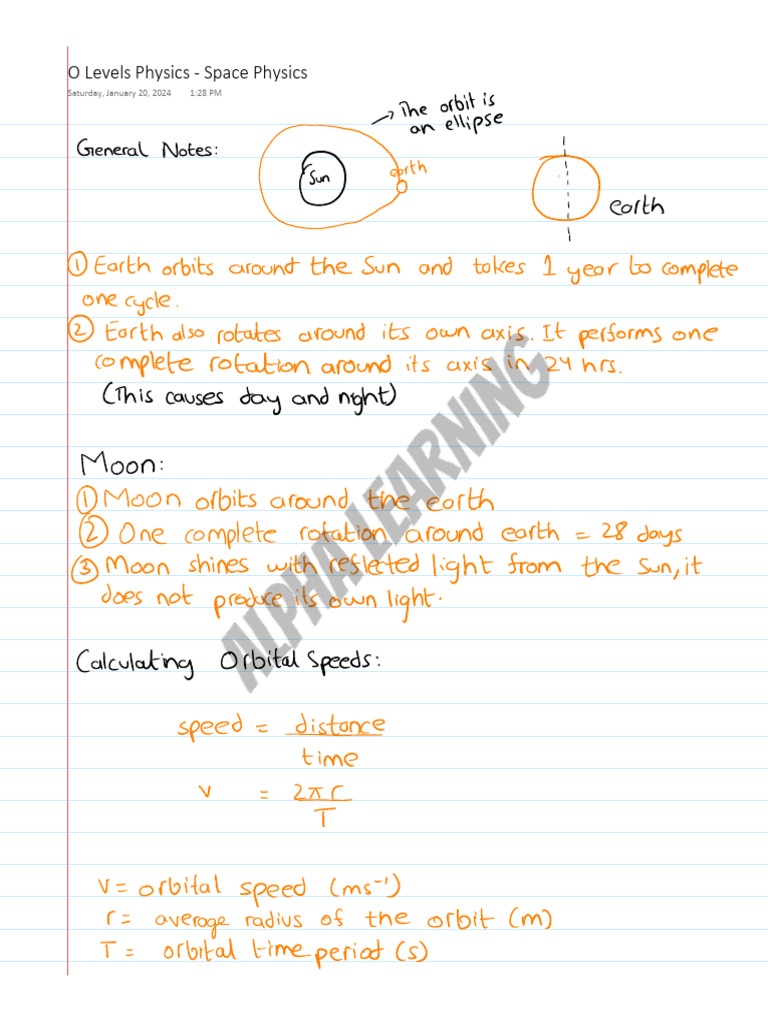 O Levels Physics - Space Physics
Saturday, January 20, 2024 1:28 PM
→ The orbit is
an ellipse
General Notes:
Sun
earth
earth
① Earth orbits around the Sun and takes 1 year to complete
one cycle.
② Earth also rotates around its own axis. It performs one
complete rotation around its axis in 24 hrs.
(This causes day and night)
Moon:
① Moon orbits around the earth
② One complete rotation around earth = 28 days
③ Moon shines with resleted light from the Sun, it
does not produce its own light.
ALPHA LEARNING
Calculating Orbital Speeds:
speed = distance
time
v = 2πr
T
v = orbital speed (ms⁻¹)
r = average radius of the orbit (m)
T = orbital time period (s)